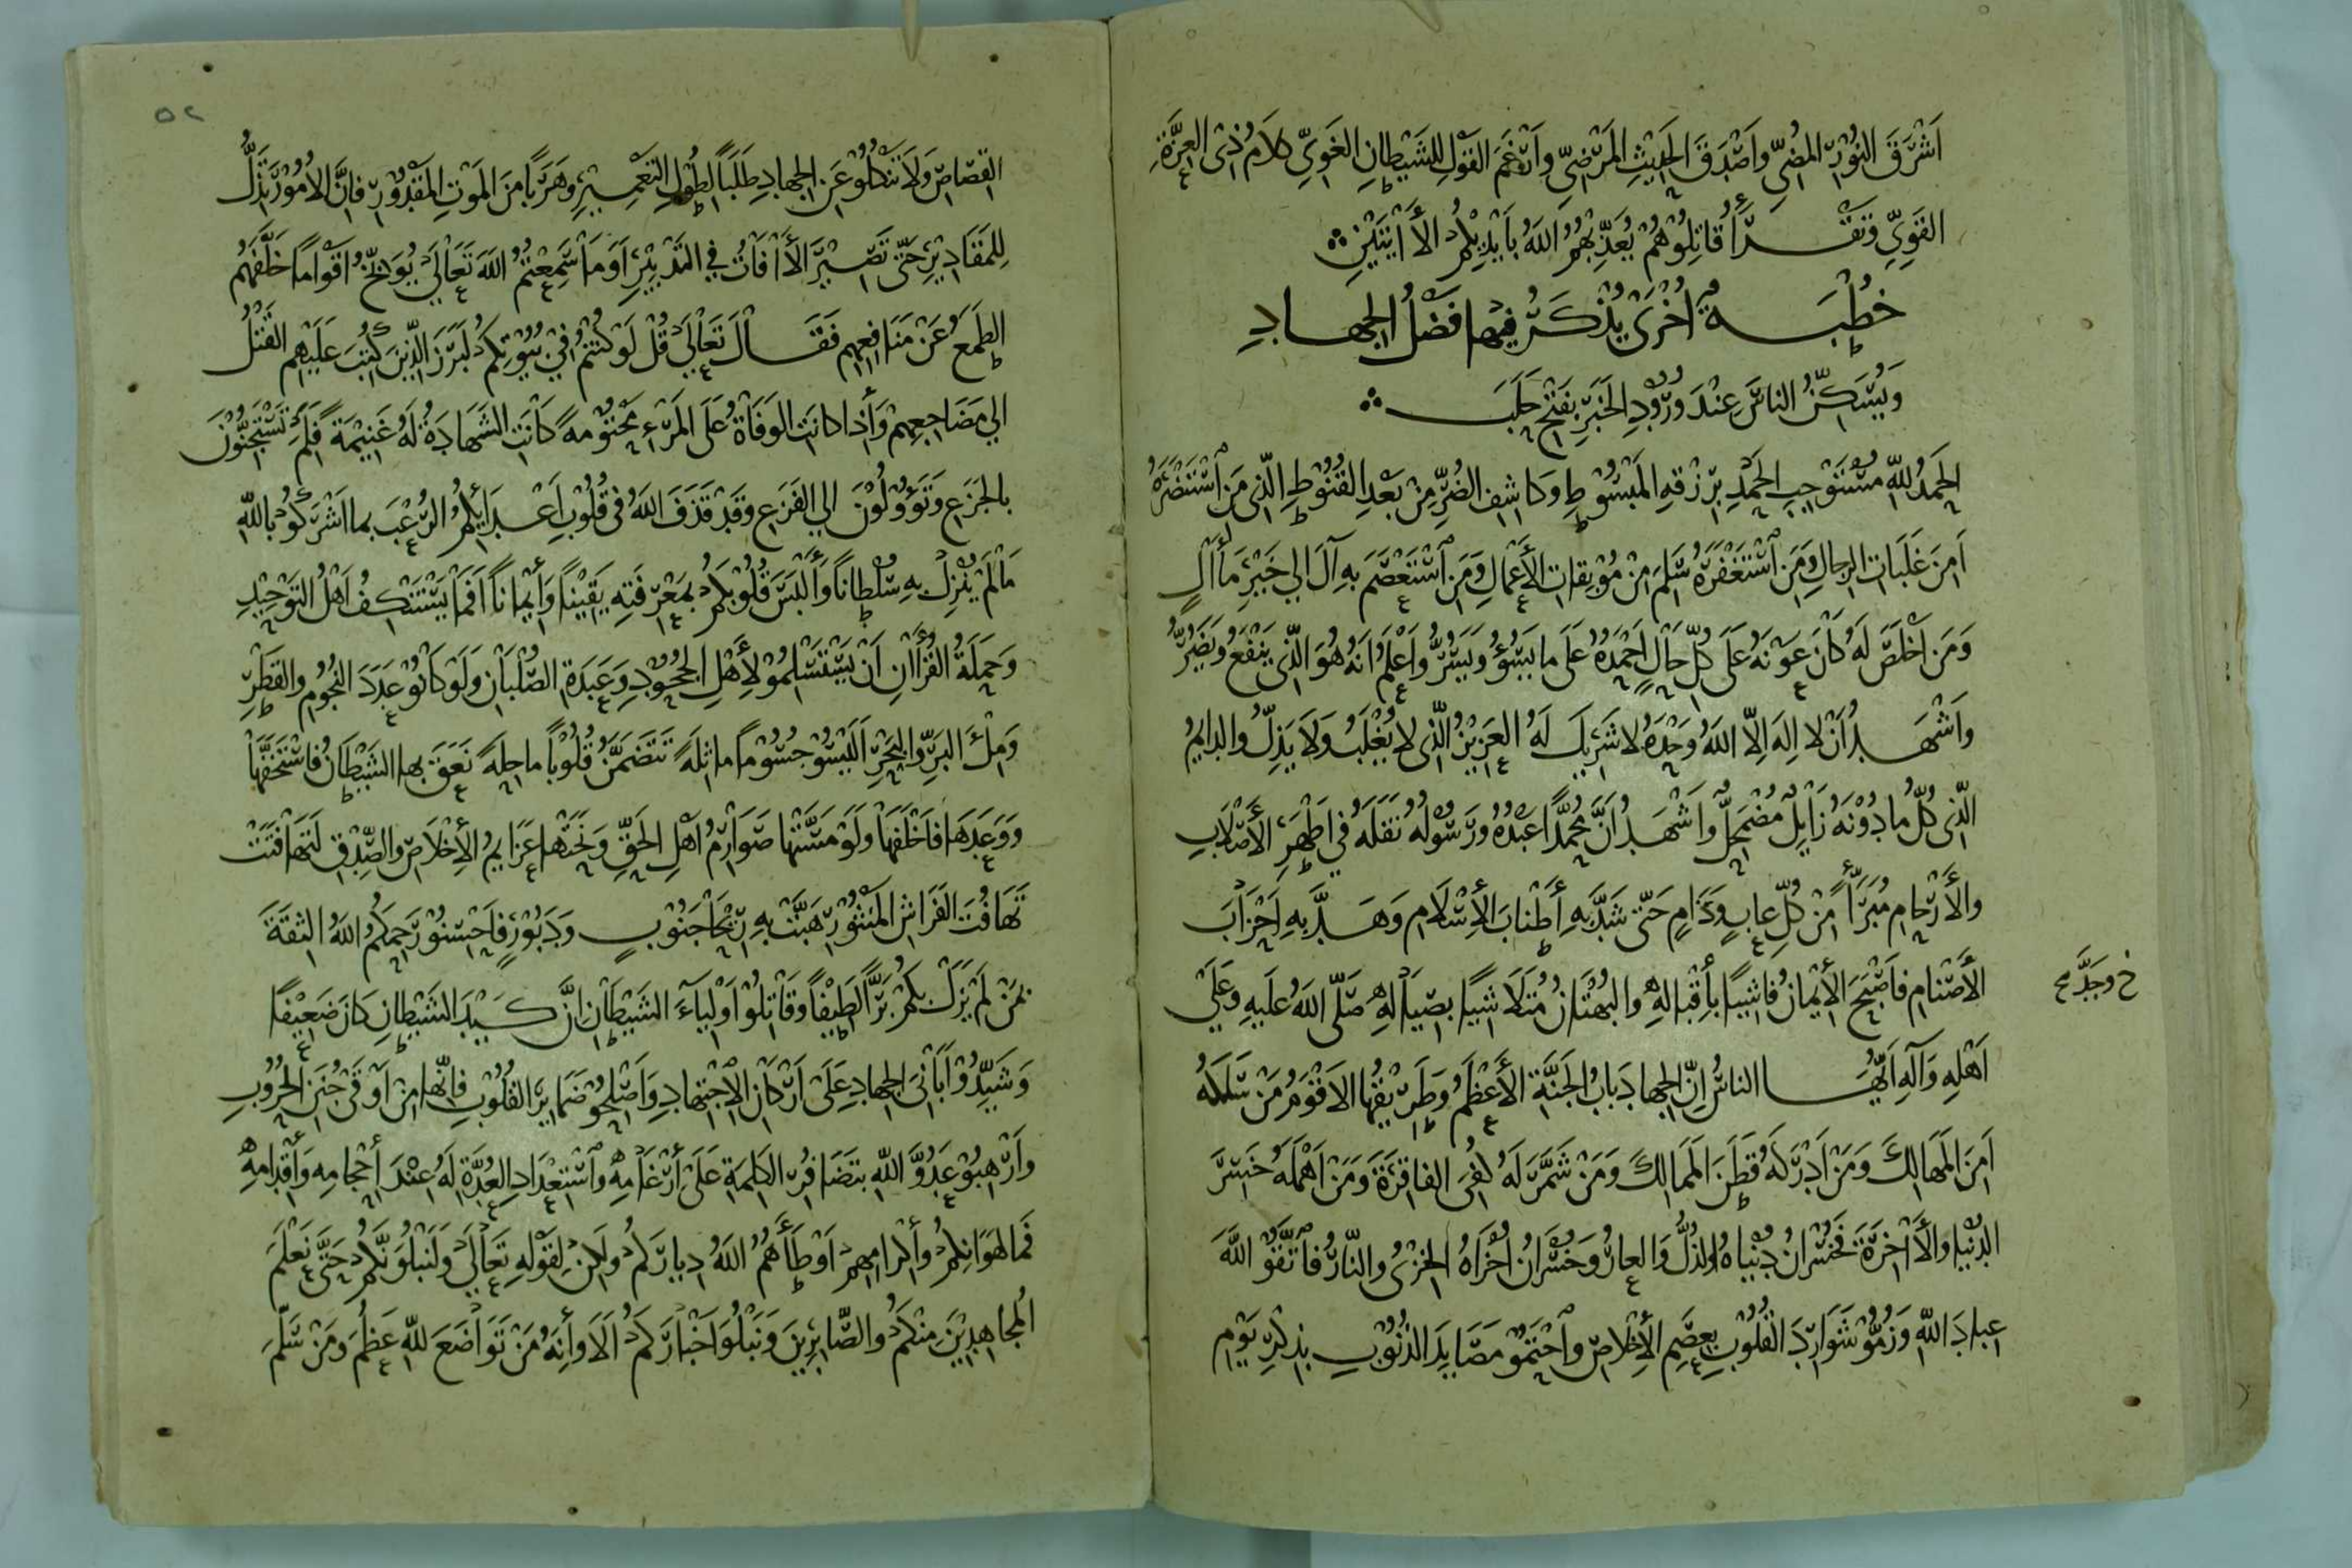 اَشْرَقَ النُّوْرِ المُضِيِّ وَاَصْدَقَ الحَدِيْثِ المَرْضِيِّ وَاَرْغَمَ القَوْلِ لِلشَّيْطانِ الغَوِيِّ كَلامُ ذِى العِزَّةِ
القَوِيِّ وَتَقْرَأُ قَاتِلُوْهُمْ يُعَذِّبْهُمُ اللّهُ بِأَيْدِيْكُمْ الأَآيَتَيْنِ
خُطْبَةٌ اُخْرَى يُذْكَرُ فِيْهَا فَضْلُ الجِهَادِ
وَيُسَكِّنُ النَّاسَ عِنْدَ وُرُوْدِ الخَبَرِ بِفَتْحِ حَلَبَ
الحَمْدُ للّهِ مُسْتَوْجِبِ الحَمْدِ بِرِزْقِهِ المَبْسُوْطِ وَكَاشِفِ الضُّرِّ مِنْ بَعْدِ القُنُوْطِ الَّذِى مَنِ اسْتَنْصَرَهُ
اَمِنَ غَلَبَاتِ الرِّجَالِ وَمَنِ اسْتَغْفَرَهُ سَلِمَ مِنْ مُوْبِقَاتِ الأَعْمَالِ وَمَنِ اسْتَعْصَمَ بِهِ آلَ الِي خَيْرِ مَأآلٍ
وَمَنْ اَخْلَصَ لَهُ كَانَ عَوْنَهُ عَلَى كُلِّ حَالٍ اَحْمَدُهُ عَلَى ما يَسُوْءُ وَيَسُرُّ وَاَعْلَمُ اَنَّهُ هُوَ الَّذِى يَنْفَعُ وَيَضُرُّ
وَاَشْهَدُ اَنْ لا اِلهَ اِلّا اللّهُ وَحْدَهُ لا شَرِيْكَ لَهُ العَزِيْزُ الَّذِى لا يُغْلَبُ وَلا يَذِلُّ وَالدَّايِمُ
الَّذِى كُلُّ ما دُوْنَهُ زَايِلٌ مُضْمَحِلٌّ وَاَشْهَدُ اَنَّ مُحَمَّدًا عَبْدُهُ وَرَسُوْلُهُ نَقَلَهُ فِي اَطْهَرِ الأَصْلابِ
وَالأَرْحَامِ مُبَرَّأً مِنْ كُلِّ عابٍ وَذَامٍ حَتَّى شَدَّ بِهِ أَطْنَابَ الأِسْلَامِ وَهَدَّ بِهِ اَحْزَابَ
خ وجَدَّ مح
الأَصْنَامِ فَاَصْبَحَ الأِيْمَانُ فَاشِيًا بِأِقْبَالِهِ وَالبُهْتَانُ مُتَلَاشِيًا بِصِيَالِهِ صَلَّى اللّهُ عَلَيهِ وَعَلَى
اَهْلِهِ وَآلِهِ اَيُّهَا النَّاسُ اِنَّ الجِهادَ بَابُ الجَنَّةِ الأَعْظَمُ وَطَرِيْقُهَا الاَقْوَمُ مَنْ سَلَكَهُ
اَمِنَ المَهَالِكَ وَمَنْ اَدْرَكَهُ قَطَنَ المَمَالِكَ وَمَنْ شَمَّرَ لَهُ كُفِىَ الفَاقِرَةَ وَمَنْ اَهْمَلَهُ خَسِرَ
الدُّنْيَا وَالأَاخِرَةَ فَخُسْرَانُ دُنْيَاهُ الذُّلُّ وَالعَارُ وَخُسْرَانُ اُخْرَاهُ الخِزْىُ وَالنَّارُ فَاتَّقُوْ اللّهَ
عِبَادَ اللّهِ وَزُمُّوْ شَوَارِدَ القُلُوْبِ بِعِصَمِ الأِخْلَاصِ وَاحْتَمُوْ مَصَايِدَ الذُّنُوْبِ بِذِكْرِ يَوْمِ
٥٢
القِصَاصِ وَلَا تَنْكُلُوْ عَنِ الجِهادِ طَلَبًا لِطُوْلِ التَّعْمِيْرِ وَهَرَبًا مِنَ المَوْتِ المَقْدُوْرِ فَاِنَّ الاُمُوْرَ تَذِلُّ
لِلمَقَادِيْرِ حَتَّى تَصِيْرَ الأَافَاتُ فِي التَّدْبِيْرِ اَوَمَا سَمِعْتُمُ اللّهَ تَعَالَي يُوَبِّخُ اَقْوَامًا خَلَّفَهُم
الطَّمَعُ عَنْ مَنَافِعِهِم فَقَالَ تَعَالَي قُلْ لَوْ كُنْتُمْ فِي بُيُوْتِكُمْ لَبَرَزَ الَّذِيْنَ كُتِبَ عَلَيْهِمُ القَتْلُ
الِي مَضَاجِعِهِمْ وَأِذَا كَانَتِ الوَفَاةُ عَلَى المَرْءِ مَحْتُوْمَةً كَانَتِ الشَّهَادَةُ لَهُ غَنِيْمَةً فَلِمَ تَسْتَجِنُّوْنَ
بِالجَزَعِ وَتَؤُوْلُوْنَ الِي الفَزَعِ وَقَدْ قَذَفَ اللّهُ فِى قُلُوْبِ اَعْدَايِكُمُ الرُّعْبَ بِمَا اَشْرَكُوْ بِاللّهِ
مَا لَمْ يُنْزِلْ بِهِ سُلْطَانًا وَأَلْبَسَ قُلُوْبَكُمْ بِمَعْرِفَتِهِ يَقِيْنًا وَأِيْمَانًا اَفَمَا يَسْتَنْكِفُ اَهْلُ التَّوْحِيْدِ
وَحَمَلَةُ القُرْأَانِ اَنْ يَسْتَسْلِمُوْ لِأَهْلِ الجُحُوْدِ وَعَبَدَةِ الصُّلْبَانِ وَلَوْ كَانُوْ عَدَدَ النُّجُوْمِ وَالقَطْرِ
وَمِلْءَ البَرِّ وَالبَحْرِ اَلَيْسُوْ جُسُوْمًا مَاثِلَةً تَتَضَمَّنُ قُلُوْبًا مَاحِلَةً نَعَقَ بِهَا الشَّيْطَانُ فَاسْتَخَفَّهَا
وَوَعَدَهَا فَاَخْلَفَهَا وَلَوْ مَسَّتْهَا صَوَارِمُ اَهْلِ الحَقِّ وَنَحَتْهَا عَزَايِمُ الأِخْلَاصِ وَالصِّدْقِ لَتَهَافَتَتْ
تَهَافُتَ الفَرَاشِ المَنْثُوْرِ هَبَّتْ بِهِ رِيْحَا جَنُوْبٍ وَدَبُوْرٍ فَاَحْسِنُوْ رَحِمَكُمُ اللّهُ الثِّقَةَ
بِمَنْ لَمْ يَزَلْ بِكُمْ بَرًّا لَطِيْفًا وَقَاتِلُوْ اَوْلِيَآءَ الشَّيْطَانِ اِنَّ كَيْدَ الشَّيْطَانِ كَانَ ضَعِيْفًا
وَشَيِّدُوْ اَبَانِىَ الجِهادِ عَلَى اَرْكَانِ الاِجْتِهَادِ وَاَصْلِحُوْ ضَمَايِرَ القُلُوْبِ فَاِنَّهَا مِنْ اَوْقَى جُنَنِ الحُرُوْبِ
وَاَرْهِبُوْ عَدُوَّ اللّهِ بِتَضَافُرِ الكَلِمَةِ عَلَى أِرْغَامِهِ وَاسْتِعْدَادِ العُدَّةِ لَهُ عِنْدَ أِحْجَامِهِ وَأِقْدَامِهِ
فَمَا لِهَوَانِكُمْ وَأِكْرَامِهِمْ اَوْطَأَهُمُ اللّهُ دِيَارَكُمْ وَلَكِنْ لِقَوْلِهِ تَعَالَي وَلَنَبْلُوَنَّكُمْ حَتَّى نَعْلَمَ
المُجَاهِدِيْنَ مِنْكُمْ وَالصَّابِرِيْنَ وَنَبْلُوَ اَخْبَارَكُمْ اَلَا وَأِنَّهُ مَنْ تَوَاضَعَ للّهِ عَظُمَ وَمَنْ سَلَّمَ